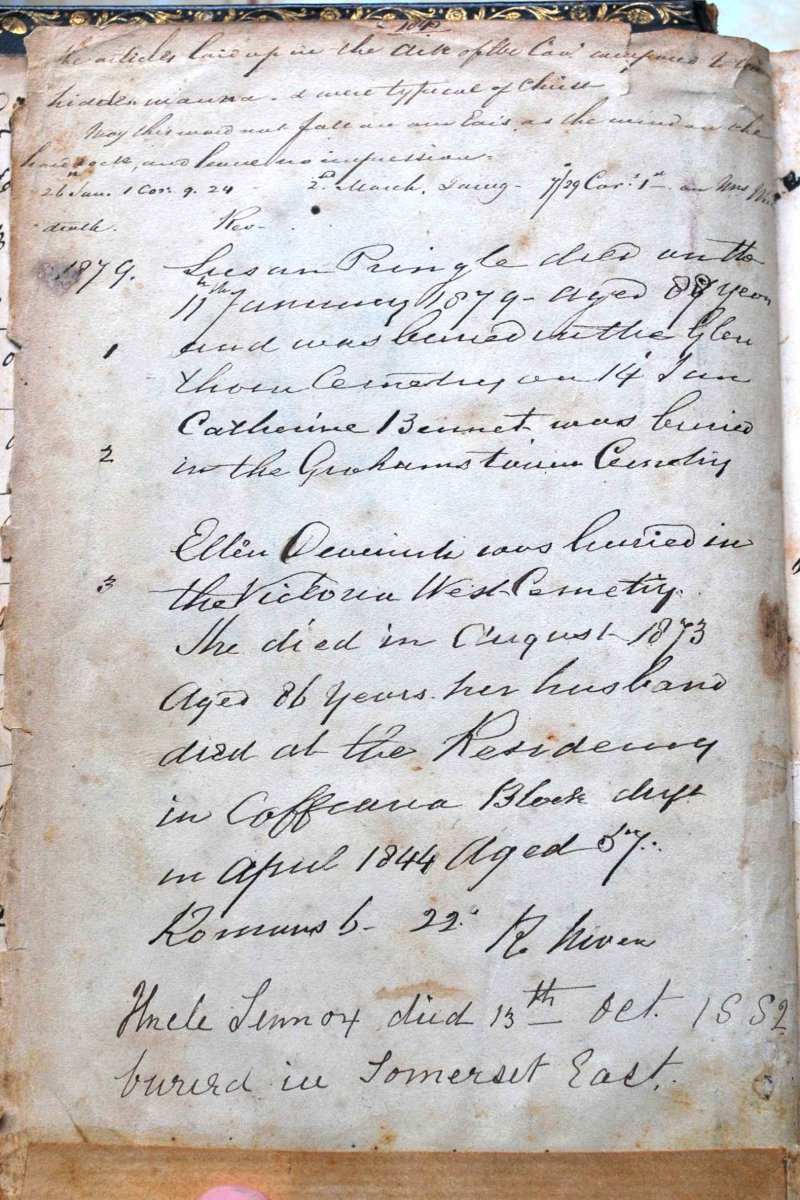 the articles laid up in the of the compared to
hidden manna - & were typical of Christ
May this word not fall on our Ears as the wind on the
hard rock, and leave no impression.
26th Jan. 1 Cor. 9. 24 - 2nd March. 7/29 Cor: 1st on Mrs
death. Rev-
1879. Susan Pringle died on the
11th January 1879 - aged 88 years
1 and was buried in the Glen
thorn Cemetry on 14 Jan
Catherine Bennet was buried
2 in the Grahamstown Cemetry
Ellen Devenish was buried in
3 the Victoria West Cemetry.
She died in August 1873
Aged 86 Years her husband
died at the Residency
in Coffeeana Block drift
in April 1844 Aged 57.
Romans 6 - 22. R
Uncle Lennox died 13th Oct. 1882
burerd in Somerset East.